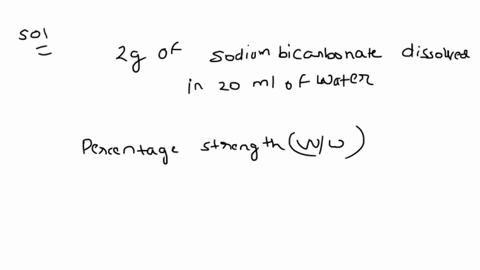 sol
2g of sodium bicarbonate dissolved
in 20 ml of water
Percentage strength (W/W)